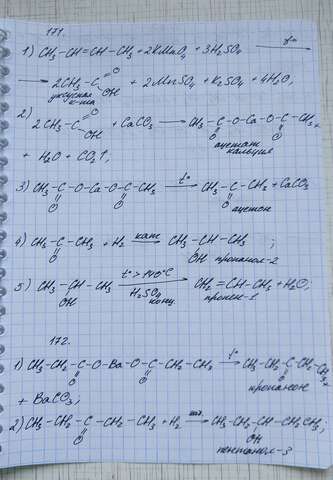 171.
1) CH₃-CH=CH-CH₃ + 2KMnO₄ + 3H₂SO₄ t° →
→ 2CH₃-C O OH + 2MnSO₄ + K₂SO₄ + 4H₂O;
уксусная к-та
2) 2CH₃-C O OH + CaCO₃ → CH₃-C-O-Ca-O-C-CH₃ +
O O
ацетат кальция
+ H₂O + CO₂↑;
3) CH₃-C-O-Ca-O-C-CH₃ t° → CH₃-C-CH₃ + CaCO₃
O O O
ацетон
4) CH₃-C-CH₃ + H₂ кат → CH₃-CH-CH₃;
O OH пропанол-2
5) CH₃-CH-CH₃ t°>140°C → CH₂=CH-CH₃ + H₂O;
OH H₂SO₄ конц. пропен-1
172.
1) CH₃-CH₂-C-O-Ba-O-C-CH₂-CH₃ t° → CH₃-CH₂-C-CH₂-CH₃ +
O O O
+ BaCO₃;
2) CH₃-CH₂-C-CH₂-CH₃ + H₂ → CH₃-CH₂-CH-CH₂CH₃;
O OH
пентанол-3